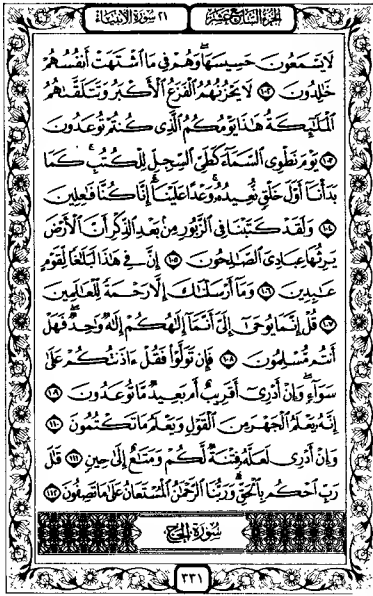 الجزء السابع عشر ٢١ سورة الأنبياء
لَا يَسْمَعُونَ حَسِيسَهَا وَهُمْ فِي مَا اشْتَهَتْ أَنفُسُهُمْ
خَالِدُونَ ١٠٢ لَا يَحْزُنُهُمُ الْفَزَعُ الْأَكْبَرُ وَتَتَلَقَّاهُمُ
الْمَلَائِكَةُ هَٰذَا يَوْمُكُمُ الَّذِي كُنتُمْ تُوعَدُونَ
١٠٣ يَوْمَ نَطْوِي السَّمَاءَ كَطَيِّ السِّجِلِّ لِلْكُتُبِ كَمَا
بَدَأْنَا أَوَّلَ خَلْقٍ نُّعِيدُهُ وَعْدًا عَلَيْنَا إِنَّا كُنَّا فَاعِلِينَ
١٠٤ وَلَقَدْ كَتَبْنَا فِي الزَّبُورِ مِن بَعْدِ الذِّكْرِ أَنَّ الْأَرْضَ
يَرِثُهَا عِبَادِيَ الصَّالِحُونَ ١٠٥ إِنَّ فِي هَٰذَا لَبَلَاغًا لِّقَوْمٍ
عَابِدِينَ ١٠٦ وَمَا أَرْسَلْنَاكَ إِلَّا رَحْمَةً لِّلْعَالَمِينَ
١٠٧ قُلْ إِنَّمَا يُوحَىٰ إِلَيَّ أَنَّمَا إِلَٰهُكُمْ إِلَٰهٌ وَاحِدٌ فَهَلْ
أَنتُم مُّسْلِمُونَ ١٠٨ فَإِن تَوَلَّوْا فَقُلْ آذَنتُكُمْ عَلَىٰ
سَوَاءٍ وَإِنْ أَدْرِي أَقَرِيبٌ أَم بَعِيدٌ مَّا تُوعَدُونَ ١٠٩
إِنَّهُ يَعْلَمُ الْجَهْرَ مِنَ الْقَوْلِ وَيَعْلَمُ مَا تَكْتُمُونَ ١١٠
وَإِنْ أَدْرِي لَعَلَّهُ فِتْنَةٌ لَّكُمْ وَمَتَاعٌ إِلَىٰ حِينٍ ١١١ قَالَ
رَبِّ احْكُم بِالْحَقِّ وَرَبُّنَا الرَّحْمَٰنُ الْمُسْتَعَانُ عَلَىٰ مَا تَصِفُونَ ١١٢
سُورَةُ الْحَجِّ
٣٣١